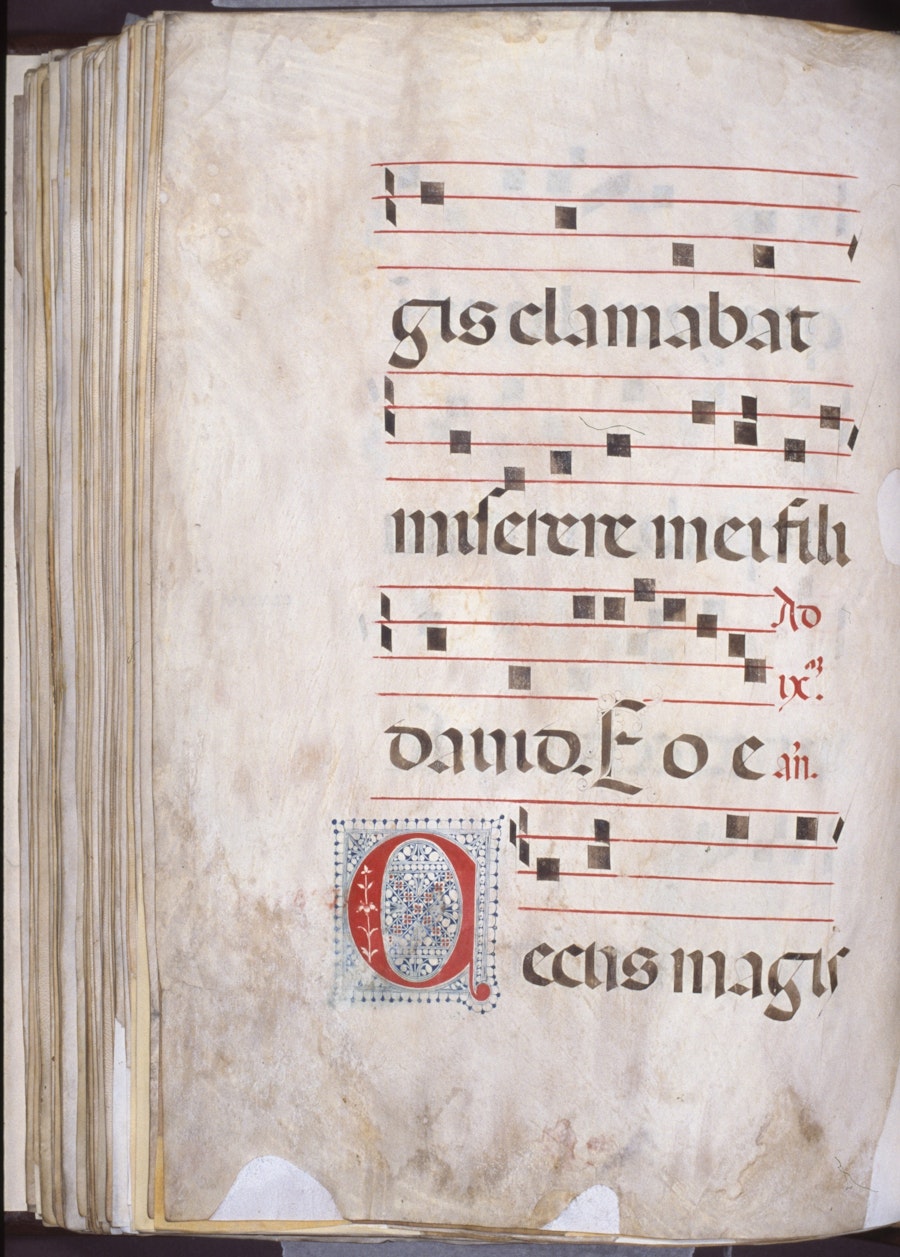 gis clamabat
miserere mei fili
Ad
ix.
dauid. E o e an.
Q ecus magis